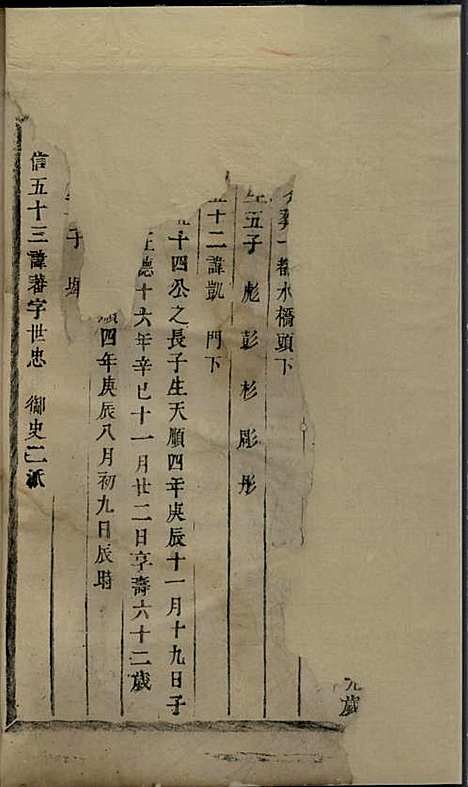 九歲
葬一都水橋頭下
生五子 彪 彭 杉 彫 彤
五十二諱凱 門下
十四公之長子生天順四年庚辰十一月十九日子
正德十六年辛巳十一月廿二日享壽六十二歲
順四年庚辰八月初九日辰時
子
信五十三諱蕃字世忠 御史二派